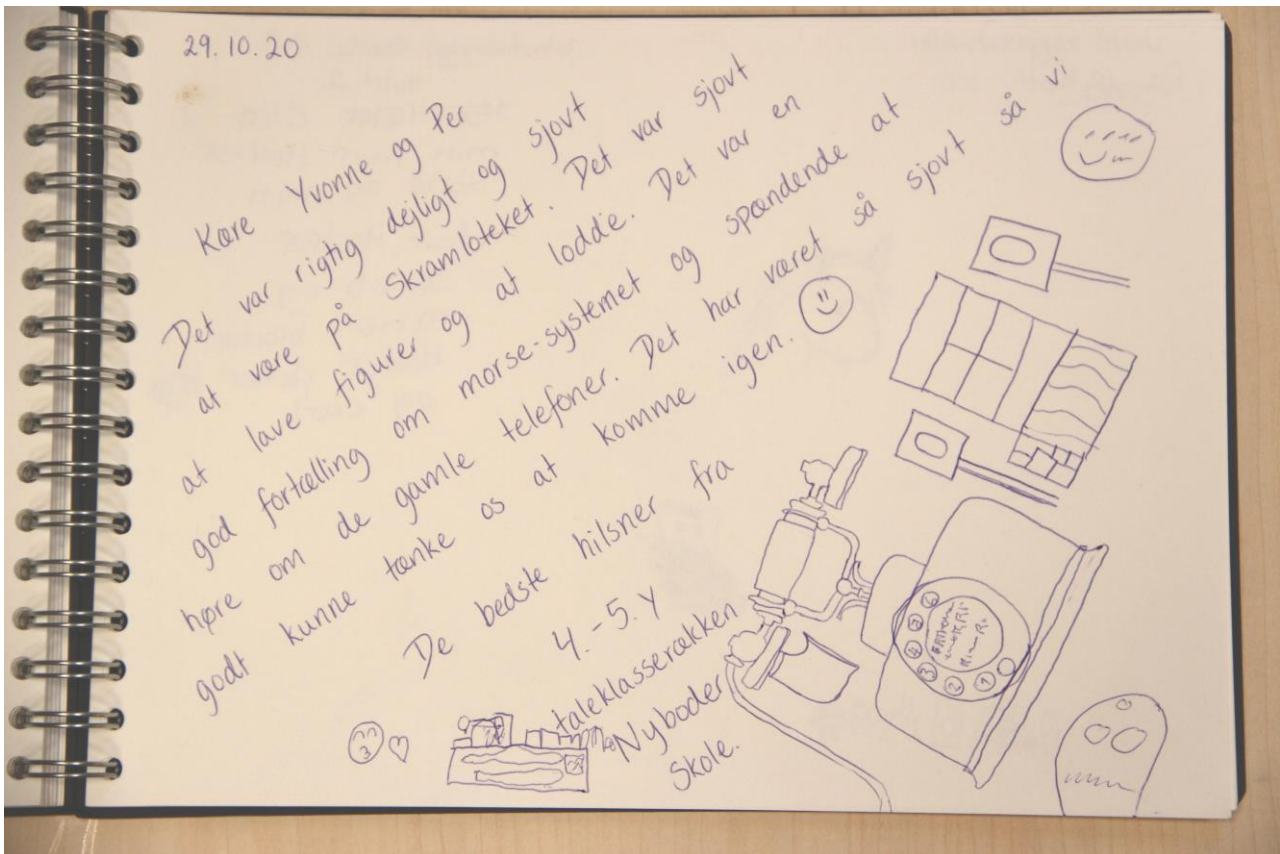 29.10.20
Kære Yvonne og Per
Det var rigtig dejligt og sjovt
at være på Skramloteket. Det var sjovt
at lave figurer og at lodde. Det var en
god fortælling om morse-systemet og spændende at
høre om de gamle telefoner. Det har været så sjovt så vi
godt kunne tænke os at komme igen.
De bedste hilsner fra
4.-5.Y
taleklasserækken
Nyboder
Skole.
6
5
4
3
2
1